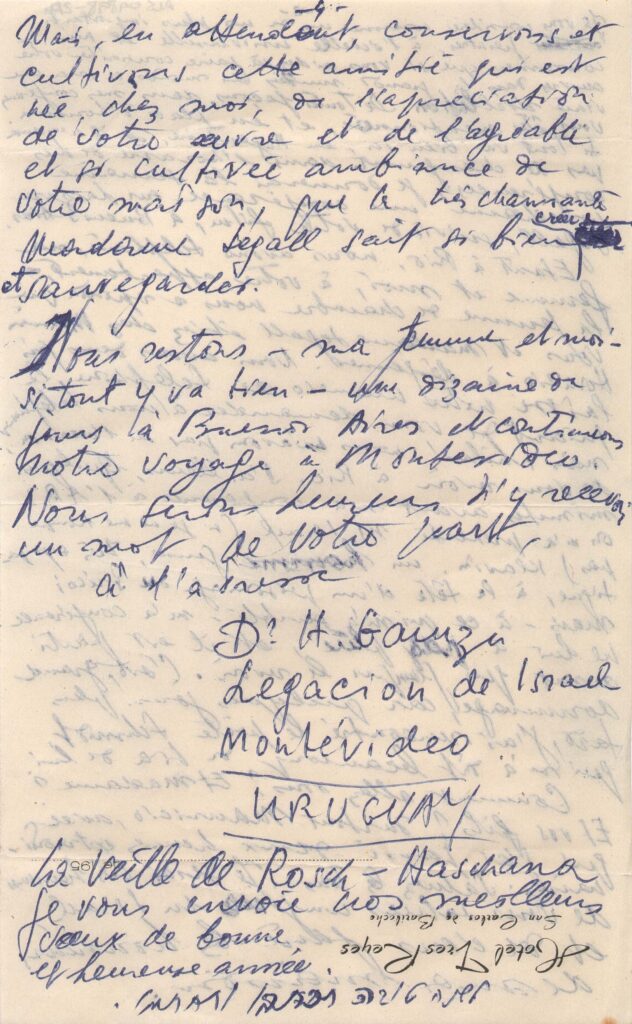 -4-
Mais, en attendant, conservons et
cultivons cette amitié qui est
née, chez moi, de l'apréciation
de votre œuvre et de l'agréable
et si cultivée ambiance de
votre maison, que la très charmante
Madame Segall sait si bien créer
et sauvegarder.
Nous restons – ma femme et moi –
si tout y va bien – une dizaine de
jours à Buenos Aires et continuons
notre voyage à Montevideo.
Nous serons heureux d'y recevoir
un mot de votre part,
à l'adresse
Dr H. Gamzu
Legacion de Israel
Montévideo
URUGUAY
La veille de Rosch-Haschana
je vous envoie nos meilleurs
vœux de bonne
et heureuse année.
Hotel Tres Reyes
San Carlos de Bariloche
195